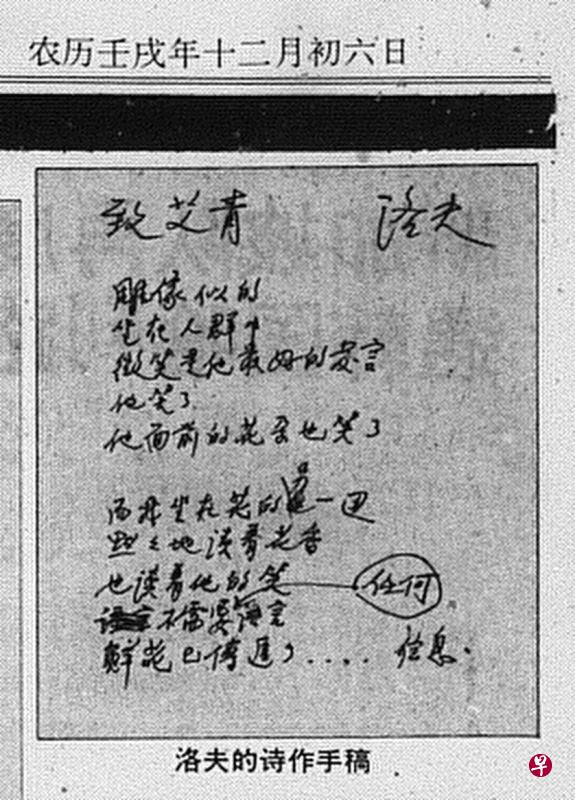 农历壬戌年十二月初六日
致艾青 洛夫
雕像似的
坐在人群中
微笑是他最好的发言
他笑了
他面前的花朵也笑了
而我坐在花的另一边
默々地读着花香
也读着他的笑
任何
不需要语言
鲜花已传递了.... 信息.
洛夫的诗作手稿
早